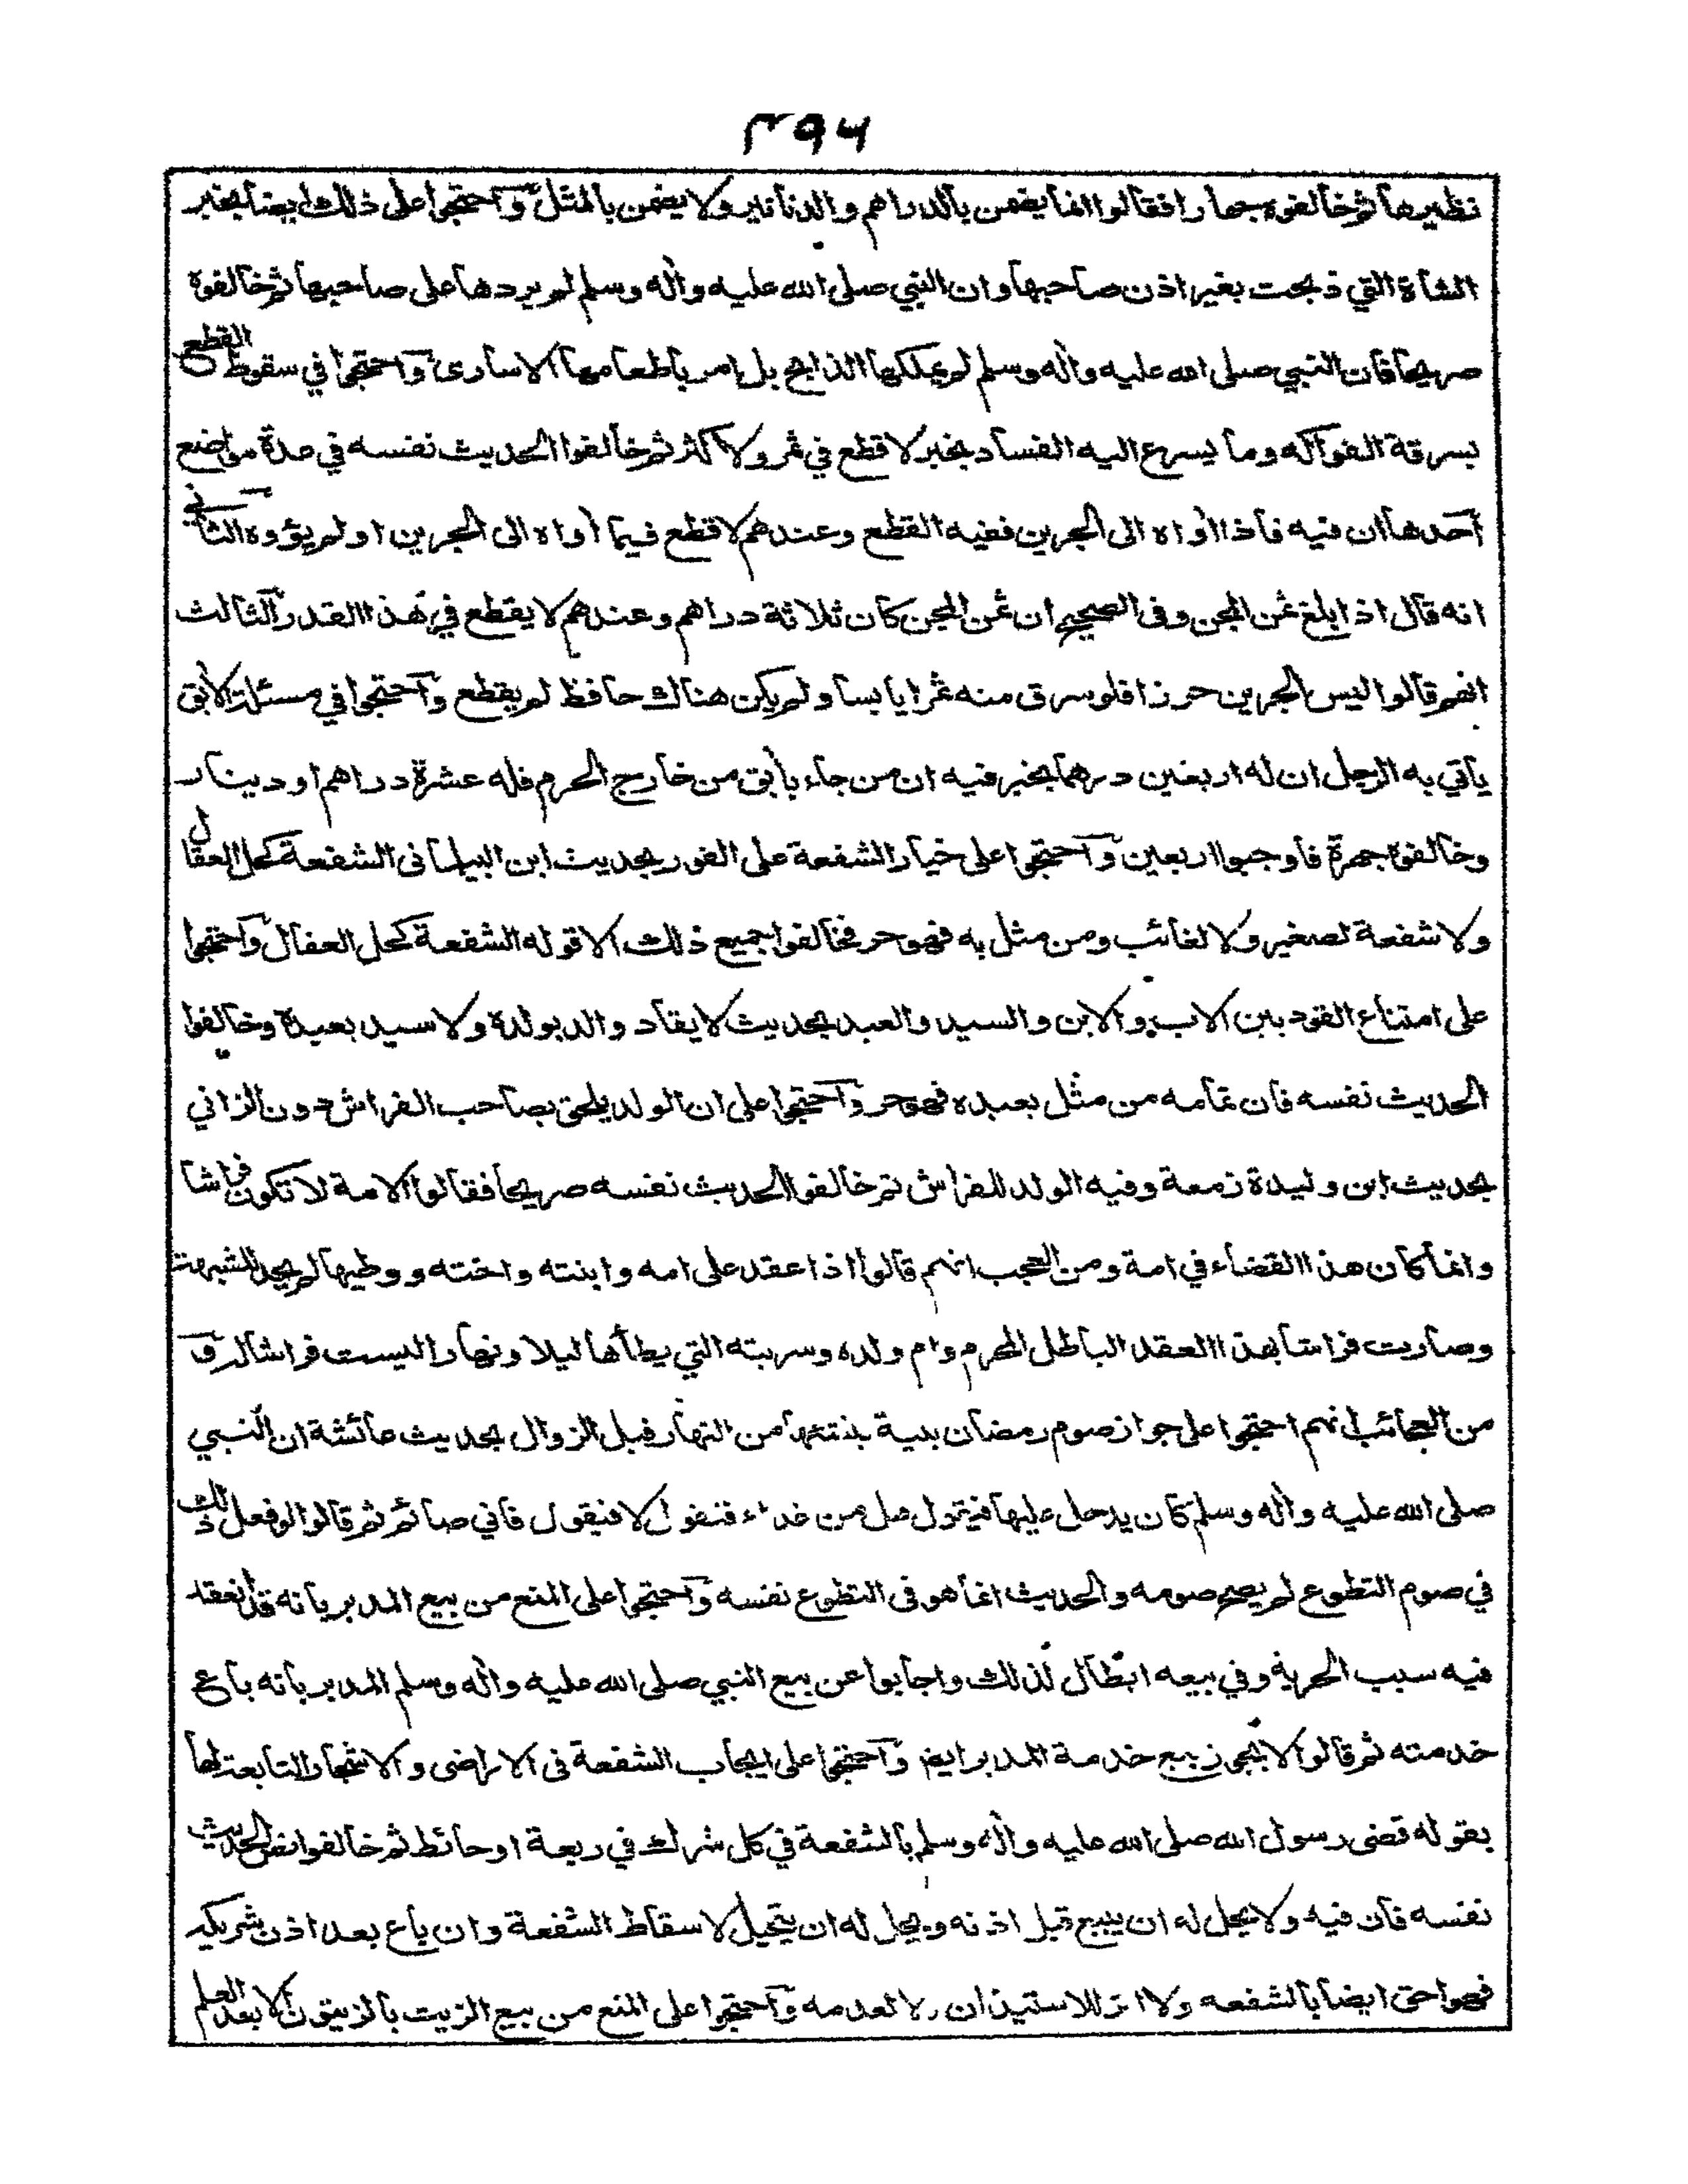 ٣٩٦
نظيرها ثم خالفوه جهارا فقالوا انما يضمن بالدراهم والدنانير ولا يضمن بالمثل واحتجوا على ذلك ايضا بخبر
الشاة التي ذبحت بغير اذن صاحبها وان النبي صلى الله عليه وآله وسلم لم يردها على صاحبها ثم خالفوه
صريحا فان النبي صلى الله عليه وآله وسلم لم يملكها الذابح بل امر باطعامها الاسارى واحتجوا في سقوط القطع
بسرقة الفواكه وما يسرع اليه الفساد بخبر لا قطع في ثمر ولا كثر ثم خالفوا الحديث نفسه في عدة مواضع
احدها ان فيه فاذا اواه الى الجرين ففيه القطع وعندهم لا قطع فيما اواه الى الجرين او لم يؤوه الثاني
انه قال اذا بلغ ثمن المجن وفى الصحيح ان ثمن المجن كان ثلاثة دراهم وعندهم لا يقطع في هذا القدر الثالث
انهم قالوا ليس الجرين حرزا فلو سرق منه ثمرا يابسا ولم يكن هناك حافظ لم يقطع واحتجوا في مسئلة الآبق
ياتي به الرجل ان له اربعين درهما بخبر فيه ان من جاء بآبق من خارج الحرم فله عشرة دراهم او دينار
وخالفوه جهرة فاوجبوا اربعين واحتجوا على خيار الشفعة على الفور بحديث ابن البيلمانى الشفعة كحل العقال
ولا شفعة لصغير ولا لغائب ومن مثل به فهو حر فخالفوا جميع ذلك الا قوله الشفعة كحل العقال واحتجوا
على امتناع القود بين الاب والابن والسيد والعبد بحديث لا يقاد والد بولده ولا سيد بعبده وخالفوا
الحديث نفسه فان تمامه من مثل بعبده فهو حر واحتجوا على ان الولد يلحق بصاحب الفراش دون الزاني
بحديث ابن وليدة زمعة وفيه الولد للفراش ثم خالفوا الحديث نفسه صريحا فقالوا الامة لا تكون فراشا
وانما كان هذا القضاء في امة ومن العجب انهم قالوا اذا عقد على امه وابنته واخته ووطيها لم يحد للشبهة
وصارت فراشا بهذا العقد الباطل المحرم وام ولده وسريته التي يطأها ليلا ونهارا ليست فراشا له و
من العجائب انهم احتجوا على جواز صوم رمضان بنية ينشئها من النهار قبل الزوال بحديث عائشة ان النبي
صلى الله عليه وآله وسلم كان يدخل عليها فيقول هل من غداء فتقول لا فيقول فاني صائم ثم قالوا لو فعل ذلك
في صوم التطوع لم يصح صومه والحديث انما هو فى التطوع نفسه واحتجوا على المنع من بيع المدبر بانه قد انعقد
فيه سبب الحرية وفي بيعه ابطال لذلك واجابوا عن بيع النبي صلى الله عليه وآله وسلم المدبر بانه باع
خدمته ثم قالوا لا يجوز بيع خدمة المدبر ايضا واحتجوا على ايجاب الشفعة فى الاراضى والاشجار التابعة لها
بقوله قضى رسول الله صلى الله عليه وآله وسلم بالشفعة في كل شرك في ربعة او حائط ثم خالفوا نص الحديث
نفسه فان فيه ولا يحل له ان يبيع قبل اذنه ويحل له ان يتحيل لاسقاط الشفعة وان باع بعد اذن شريكه
فهو احق ايضا بالشفعه ولا اثر للاستيذان ولا لعدمه واحتجوا على المنع من بيع الزيت بالزيتون الا بعد العلم